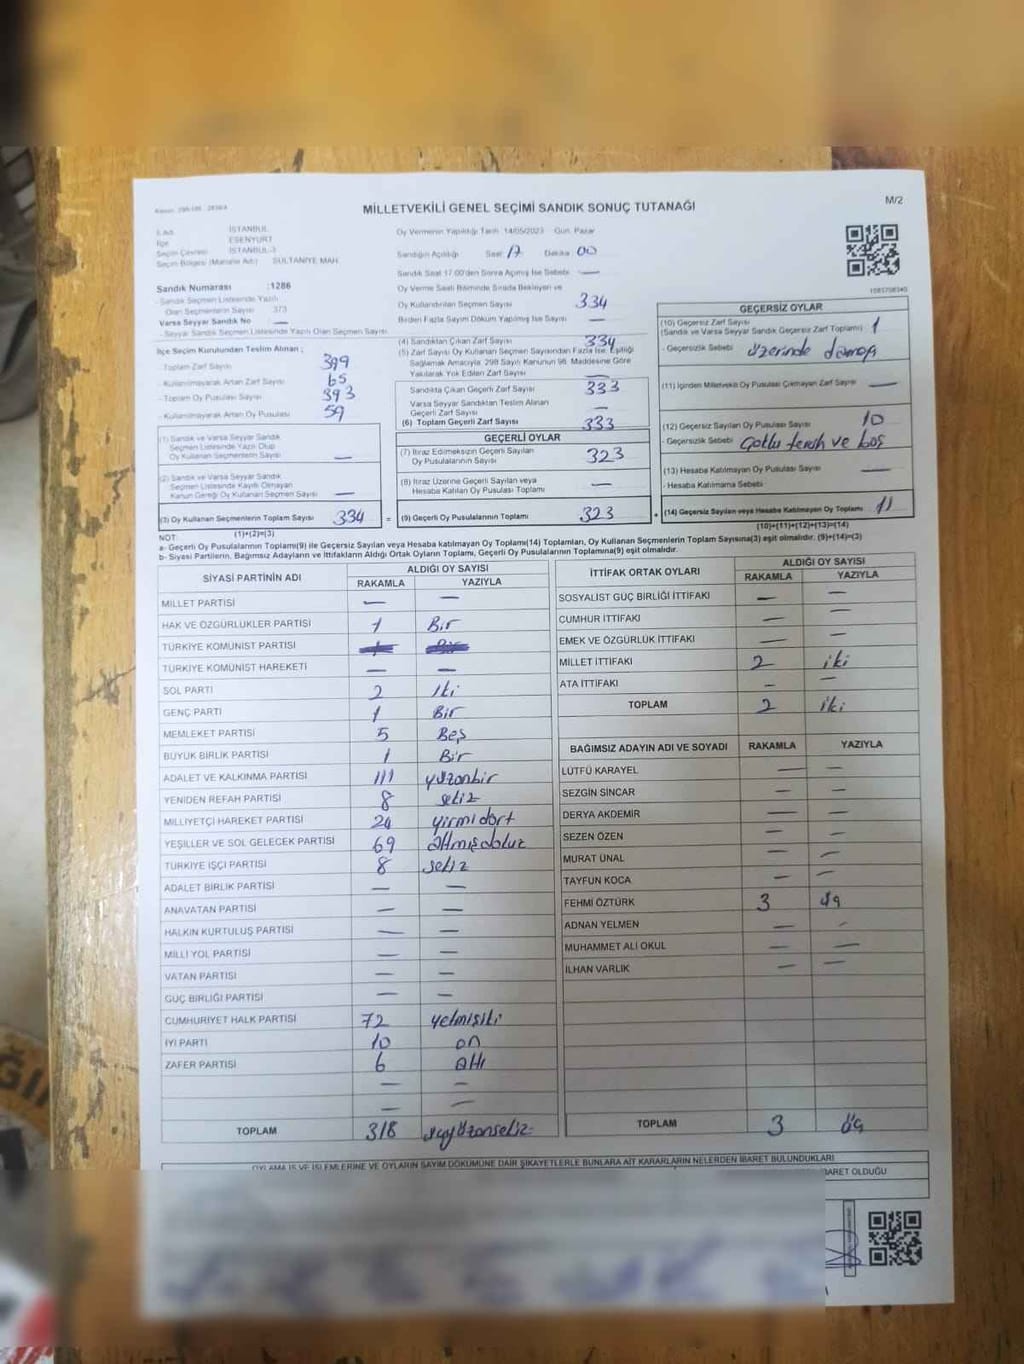 M/2
MİLLETVEKİLİ GENEL SEÇİMİ SANDIK SONUÇ TUTANAĞI
İSTANBUL
İlçe ESENYURT
Seçim Çevresi İSTANBUL-3
Seçim Bölgesi (Mahalle Adı) SULTANİYE MAH.
Sandık Numarası :1286
- Sandık Seçmen Listesinde Yazılı
Olan Seçmenlerin Sayısı 373
Varsa Seyyar Sandık No —
- Seyyar Sandık Seçmen Listesinde Yazılı Olan Seçmen Sayısı
İlçe Seçim Kurulundan Teslim Alınan ;
- Toplam Zarf Sayısı 399
- Kullanılmayarak Artan Zarf Sayısı 65
- Toplam Oy Pusulası Sayısı 393
- Kullanılmayarak Artan Oy Pusulası 59
(1) Sandık ve Varsa Seyyar Sandık
Seçmen Listesinde Yazılı Olup
Oy Kullanan Seçmenlerin Sayısı —
(2) Sandık ve Varsa Seyyar Sandık
Seçmen Listesinde Kayıtlı Olmayan
Kanun Gereği Oy Kullanan Seçmen Sayısı —
(3) Oy Kullanan Seçmenlerin Toplam Sayısı 334
(1)+(2)=(3)
Oy Vermenin Yapıldığı Tarih 14/05/2023 Gün Pazar
Sandığın Açıldığı Saat 17 Dakika 00
Sandık Saat 17.00'den Sonra Açılmış İse Sebebi —
Oy Verme Saati Bitiminde Sırada Bekleyen ve
Oy Kullandırılan Seçmen Sayısı 334
Birden Fazla Sayım Döküm Yapılmış İse Sayısı —
(4) Sandıktan Çıkan Zarf Sayısı 334
(5) Zarf Sayısı Oy Kullanan Seçmen Sayısından Fazla İse, Eşitliği
Sağlamak Amacıyla 298 Sayılı Kanunun 98. Maddesine Göre
Yakılarak Yok Edilen Zarf Sayısı —
Sandıkta Çıkan Geçerli Zarf Sayısı 333
Varsa Seyyar Sandıktan Teslim Alınan
Geçerli Zarf Sayısı —
(6) Toplam Geçerli Zarf Sayısı 333
GEÇERLİ OYLAR
(7) İtiraz Edilmeksizin Geçerli Sayılan
Oy Pusulalarının Sayısı 323
(8) İtiraz Üzerine Geçerli Sayılan veya
Hesaba Katılan Oy Pusulası Toplamı —
= (9) Geçerli Oy Pusulalarının Toplamı 323
GEÇERSİZ OYLAR
(10) Geçersiz Zarf Sayısı
(Sandık ve Varsa Seyyar Sandık Geçersiz Zarf Toplamı) 1
- Geçersizlik Sebebi üzerinde damga
(11) İçinden Milletvekili Oy Pusulası Çıkmayan Zarf Sayısı —
(12) Geçersiz Sayılan Oy Pusulası Sayısı 10
- Geçersizlik Sebebi Çoklu tercih ve boş
(13) Hesaba Katılmayan Oy Pusulası Sayısı —
- Hesaba Katılmama Sebebi
+ (14) Geçersiz Sayılan veya Hesaba Katılmayan Oy Toplamı 11
(10)+(11)+(12)+(13)=(14)
NOT:
a- Geçerli Oy Pusulalarının Toplamı(9) ile Geçersiz Sayılan veya Hesaba katılmayan Oy Toplamı(14) Toplamları, Oy Kullanan Seçmenlerin Toplam Sayısına(3) eşit olmalıdır. (9)+(14)=(3)
b- Siyasi Partilerin, Bağımsız Adayların ve İttifakların Aldığı Ortak Oyların Toplamı, Geçerli Oy Pusulalarının Toplamına(9) eşit olmalıdır.
SİYASİ PARTİNİN ADI ALDIĞI OY SAYISI
RAKAMLA YAZIYLA
MİLLET PARTİSİ — —
HAK VE ÖZGÜRLÜKLER PARTİSİ 1 Bir
TÜRKİYE KOMÜNİST PARTİSİ
TÜRKİYE KOMÜNİST HAREKETİ — —
SOL PARTİ 2 İki
GENÇ PARTİ 1 Bir
MEMLEKET PARTİSİ 5 Beş
BÜYÜK BİRLİK PARTİSİ 1 Bir
ADALET VE KALKINMA PARTİSİ 111 yüzonbir
YENİDEN REFAH PARTİSİ 8 sekiz
MİLLİYETÇİ HAREKET PARTİSİ 24 yirmidört
YEŞİLLER VE SOL GELECEK PARTİSİ 69 altmışdokuz
TÜRKİYE İŞÇİ PARTİSİ 8 sekiz
ADALET BİRLİK PARTİSİ — —
ANAVATAN PARTİSİ — —
HALKIN KURTULUŞ PARTİSİ — —
MİLLİ YOL PARTİSİ — —
VATAN PARTİSİ — —
GÜÇ BİRLİĞİ PARTİSİ — —
CUMHURİYET HALK PARTİSİ 72 yetmişiki
İYİ PARTİ 10 on
ZAFER PARTİSİ 6 altı
— —
— —
TOPLAM 318 üçyüzonsekiz
İTTİFAK ORTAK OYLARI ALDIĞI OY SAYISI
RAKAMLA YAZIYLA
SOSYALİST GÜÇ BİRLİĞİ İTTİFAKI — —
CUMHUR İTTİFAKI — —
EMEK VE ÖZGÜRLÜK İTTİFAKI — —
MİLLET İTTİFAKI 2 iki
ATA İTTİFAKI — —
TOPLAM 2 iki
BAĞIMSIZ ADAYIN ADI VE SOYADI RAKAMLA YAZIYLA
LÜTFÜ KARAYEL — —
SEZGİN SİNCAR — —
DERYA AKDEMİR — —
SEZEN ÖZEN — —
MURAT ÜNAL — —
TAYFUN KOCA — —
FEHMİ ÖZTÜRK 3 üç
ADNAN YELMEN — —
MUHAMMET ALİ OKUL — —
İLHAN VARLIK — —
TOPLAM 3 üç
OYLAMA İŞ VE İŞLEMLERİNE VE OYLARIN SAYIM DÖKÜMÜNE DAİR ŞİKAYETLERLE BUNLARA AİT KARARLARIN NELERDEN İBARET BULUNDUKLARI
BARET OLDUĞU